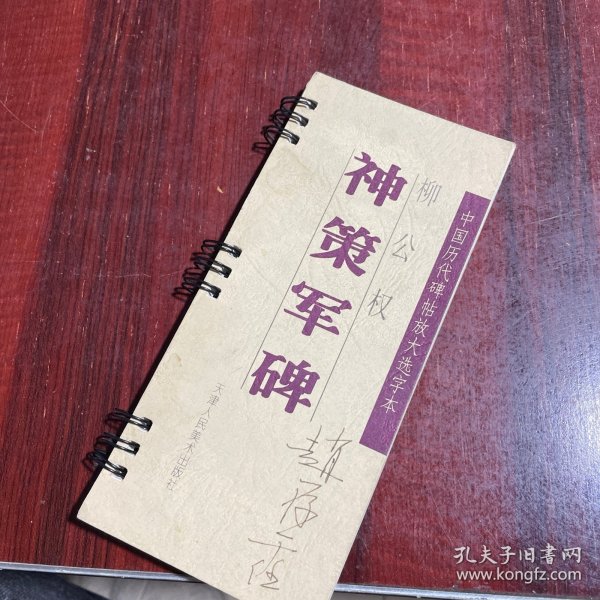 中国历代碑帖放大选字本
柳公权
神策军碑
天津人民美术出版社
孔夫子旧书网
www.kongfz.com